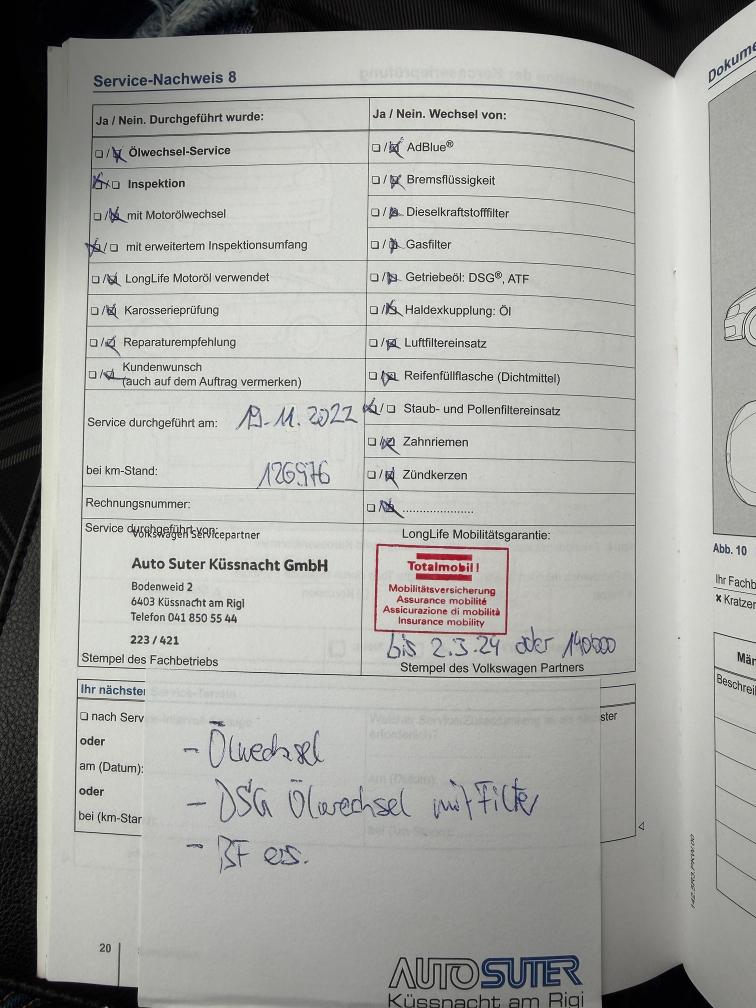 Service-Nachweis 8
Ja / Nein. Durchgeführt wurde:
❏ / ❏ Ölwechsel-Service
❏ / ❏ Inspektion
❏ / ❏ mit Motorölwechsel
❏ / ❏ mit erweitertem Inspektionsumfang
❏ / ❏ LongLife Motoröl verwendet
❏ / ❏ Karosserieprüfung
❏ / ❏ Reparaturempfehlung
❏ / ❏ Kundenwunsch
(auch auf dem Auftrag vermerken)
Service durchgeführt am: 19.11.2022
bei km-Stand: 126976
Rechnungsnummer:
Service durchgeführt von:
Volkswagen Servicepartner
Auto Suter Küssnacht GmbH
Bodenweid 2
6403 Küssnacht am Rigi
Telefon 041 850 55 44
223 / 421
Stempel des Fachbetriebs
Ja / Nein. Wechsel von:
❏ / ❏ AdBlue®
❏ / ❏ Bremsflüssigkeit
❏ / ❏ Dieselkraftstofffilter
❏ / ❏ Gasfilter
❏ / ❏ Getriebeöl: DSG®, ATF
❏ / ❏ Haldexkupplung: Öl
❏ / ❏ Luftfiltereinsatz
❏ / ❏ Reifenfüllflasche (Dichtmittel)
❏ / ❏ Staub- und Pollenfiltereinsatz
❏ / ❏ Zahnriemen
❏ / ❏ Zündkerzen
❏ / ❏ ......................
LongLife Mobilitätsgarantie:
Totalmobil!
Mobilitätsversicherung
Assurance mobilité
Assicurazione di mobilità
Insurance mobility
bis 2.3.24 oder 140000
Stempel des Volkswagen Partners
Ihr nächster
❏ nach Serv
oder
am (Datum):
oder
bei (km-Stan
- Ölwechsel
- DSG Ölwechsel mit Filter
- BF ers.
AUTO SUTER
Küssnacht am Rigi
20
Dokume
Abb. 10
Ihr Fachb
× Kratzer
Män
Beschreib